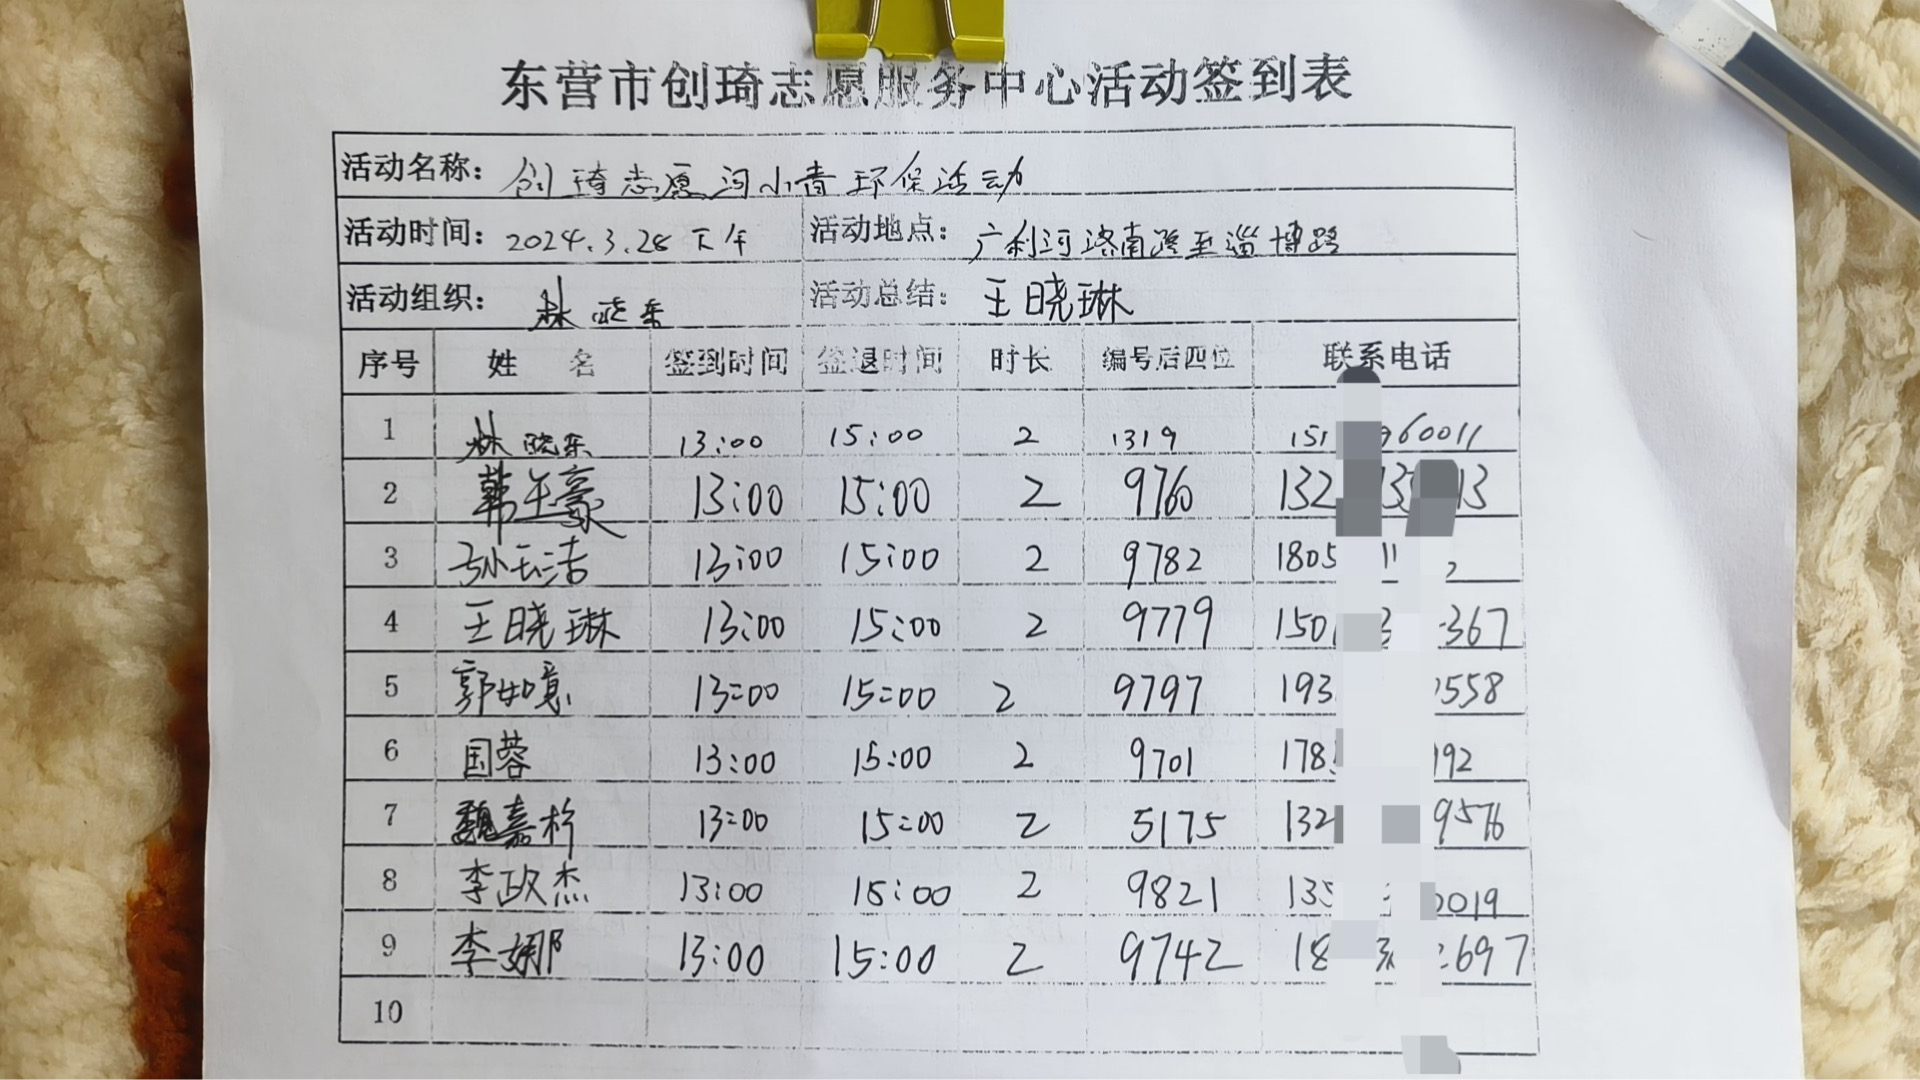 东营市创琦志愿服务中心活动签到表
活动名称： 创琦志愿河小青环保活动
活动时间： 2024.3.28 下午 活动地点： 广利河济南路至淄博路
活动组织： 林晓东 活动总结： 王晓琳
序号 姓名 签到时间 签退时间 时长 编号后四位 联系电话
1 林晓东 13:00 15:00 2 1319 151 960011
2 韩玉豪 13:00 15:00 2 9760 132 13 13
3 孙玉洁 13:00 15:00 2 9782 1805 11 2
4 王晓琳 13:00 15:00 2 9779 150 3 367
5 郭如意 13:00 15:00 2 9797 193 558
6 国蓉 13:00 15:00 2 9701 178 192
7 魏嘉杉 13:00 15:00 2 5175 132 9576
8 李政杰 13:00 15:00 2 9821 135 0019
9 李娜 13:00 15:00 2 9742 18 697
10